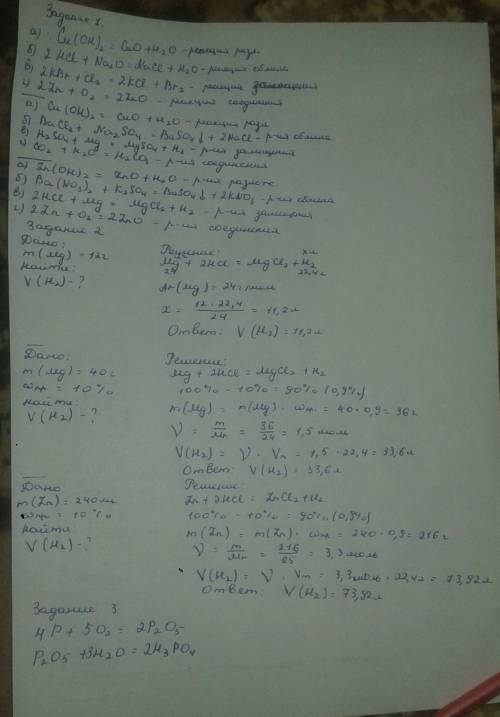 Задание 1.
а) Cu(OH)₂ = CuO + H₂O - реакция разл
б) 2HCl + Na₂O = NaCl + H₂O - реакция обмена
в) 2KBr + Cl₂ = 2KCl + Br₂ - реакция замещения
г) 2Zn + O₂ = 2ZnO - реакция соединения
а) Cu(OH)₂ = CuO + H₂O - реакция разл
б) BaCl₂ + Na₂SO₄ = BaSO₄↓ + 2NaCl - р-ия обмена
в) H₂SO₄ + Mg = MgSO₄ + H₂ - р-ия замещения
г) CO₂ + H₂O = H₂CO₃ - р-ия соединения
а) Zn(OH)₂ = ZnO + H₂O - р-ия разлож.
б) Ba(NO₃)₂ + K₂SO₄ = BaSO₄↓ + 2KNO₃ - р-ия обмена
в) 2HCl + Mg = MgCl₂ + H₂ - р-ия замещения
г) 2Zn + O₂ = 2ZnO - р-ия соединения
Задание 2
Дано:
m(Mg) = 12г
найти:
V(H₂) - ?
Решение:
x л
Mg + 2HCl = MgCl₂ + H₂
24 22,4л
Ar(Mg) = 24г/моль
x = 12 · 22,4 / 24 = 11,2л
Ответ: V(H₂) = 11,2л
Дано:
m(Mg) = 40г
ωпр = 10%
найти:
V(H₂) - ?
Решение:
Mg + 2HCl = MgCl₂ + H₂
100% - 10% = 90% (0,9%)
m(Mg) = m(Mg) · ωпр = 40 · 0,9 = 36г
ν = m/Mr = 36/24 = 1,5 моль
V(H₂) = ν · Vm = 1,5 · 22,4 = 33,6л
Ответ: V(H₂) = 33,6л
Дано
m(Zn) = 240
ωпр = 10%
найти
V(H₂) - ?
Решение:
Zn + 2HCl = ZnCl₂ + H₂
100% - 10% = 90% (0,9%)
m(Zn) = m(Zn) · ωпр = 240 · 0,9 = 216г
ν = m/Mr = 216/65 = 3,3моль
V(H₂) = ν · Vm = 3,3моль · 22,4л = 73,92л
Ответ: V(H₂) = 73,92л
Задание 3
4P + 5O₂ = 2P₂O₅
P₂O₅ + 3H₂O = 2H₃PO₄